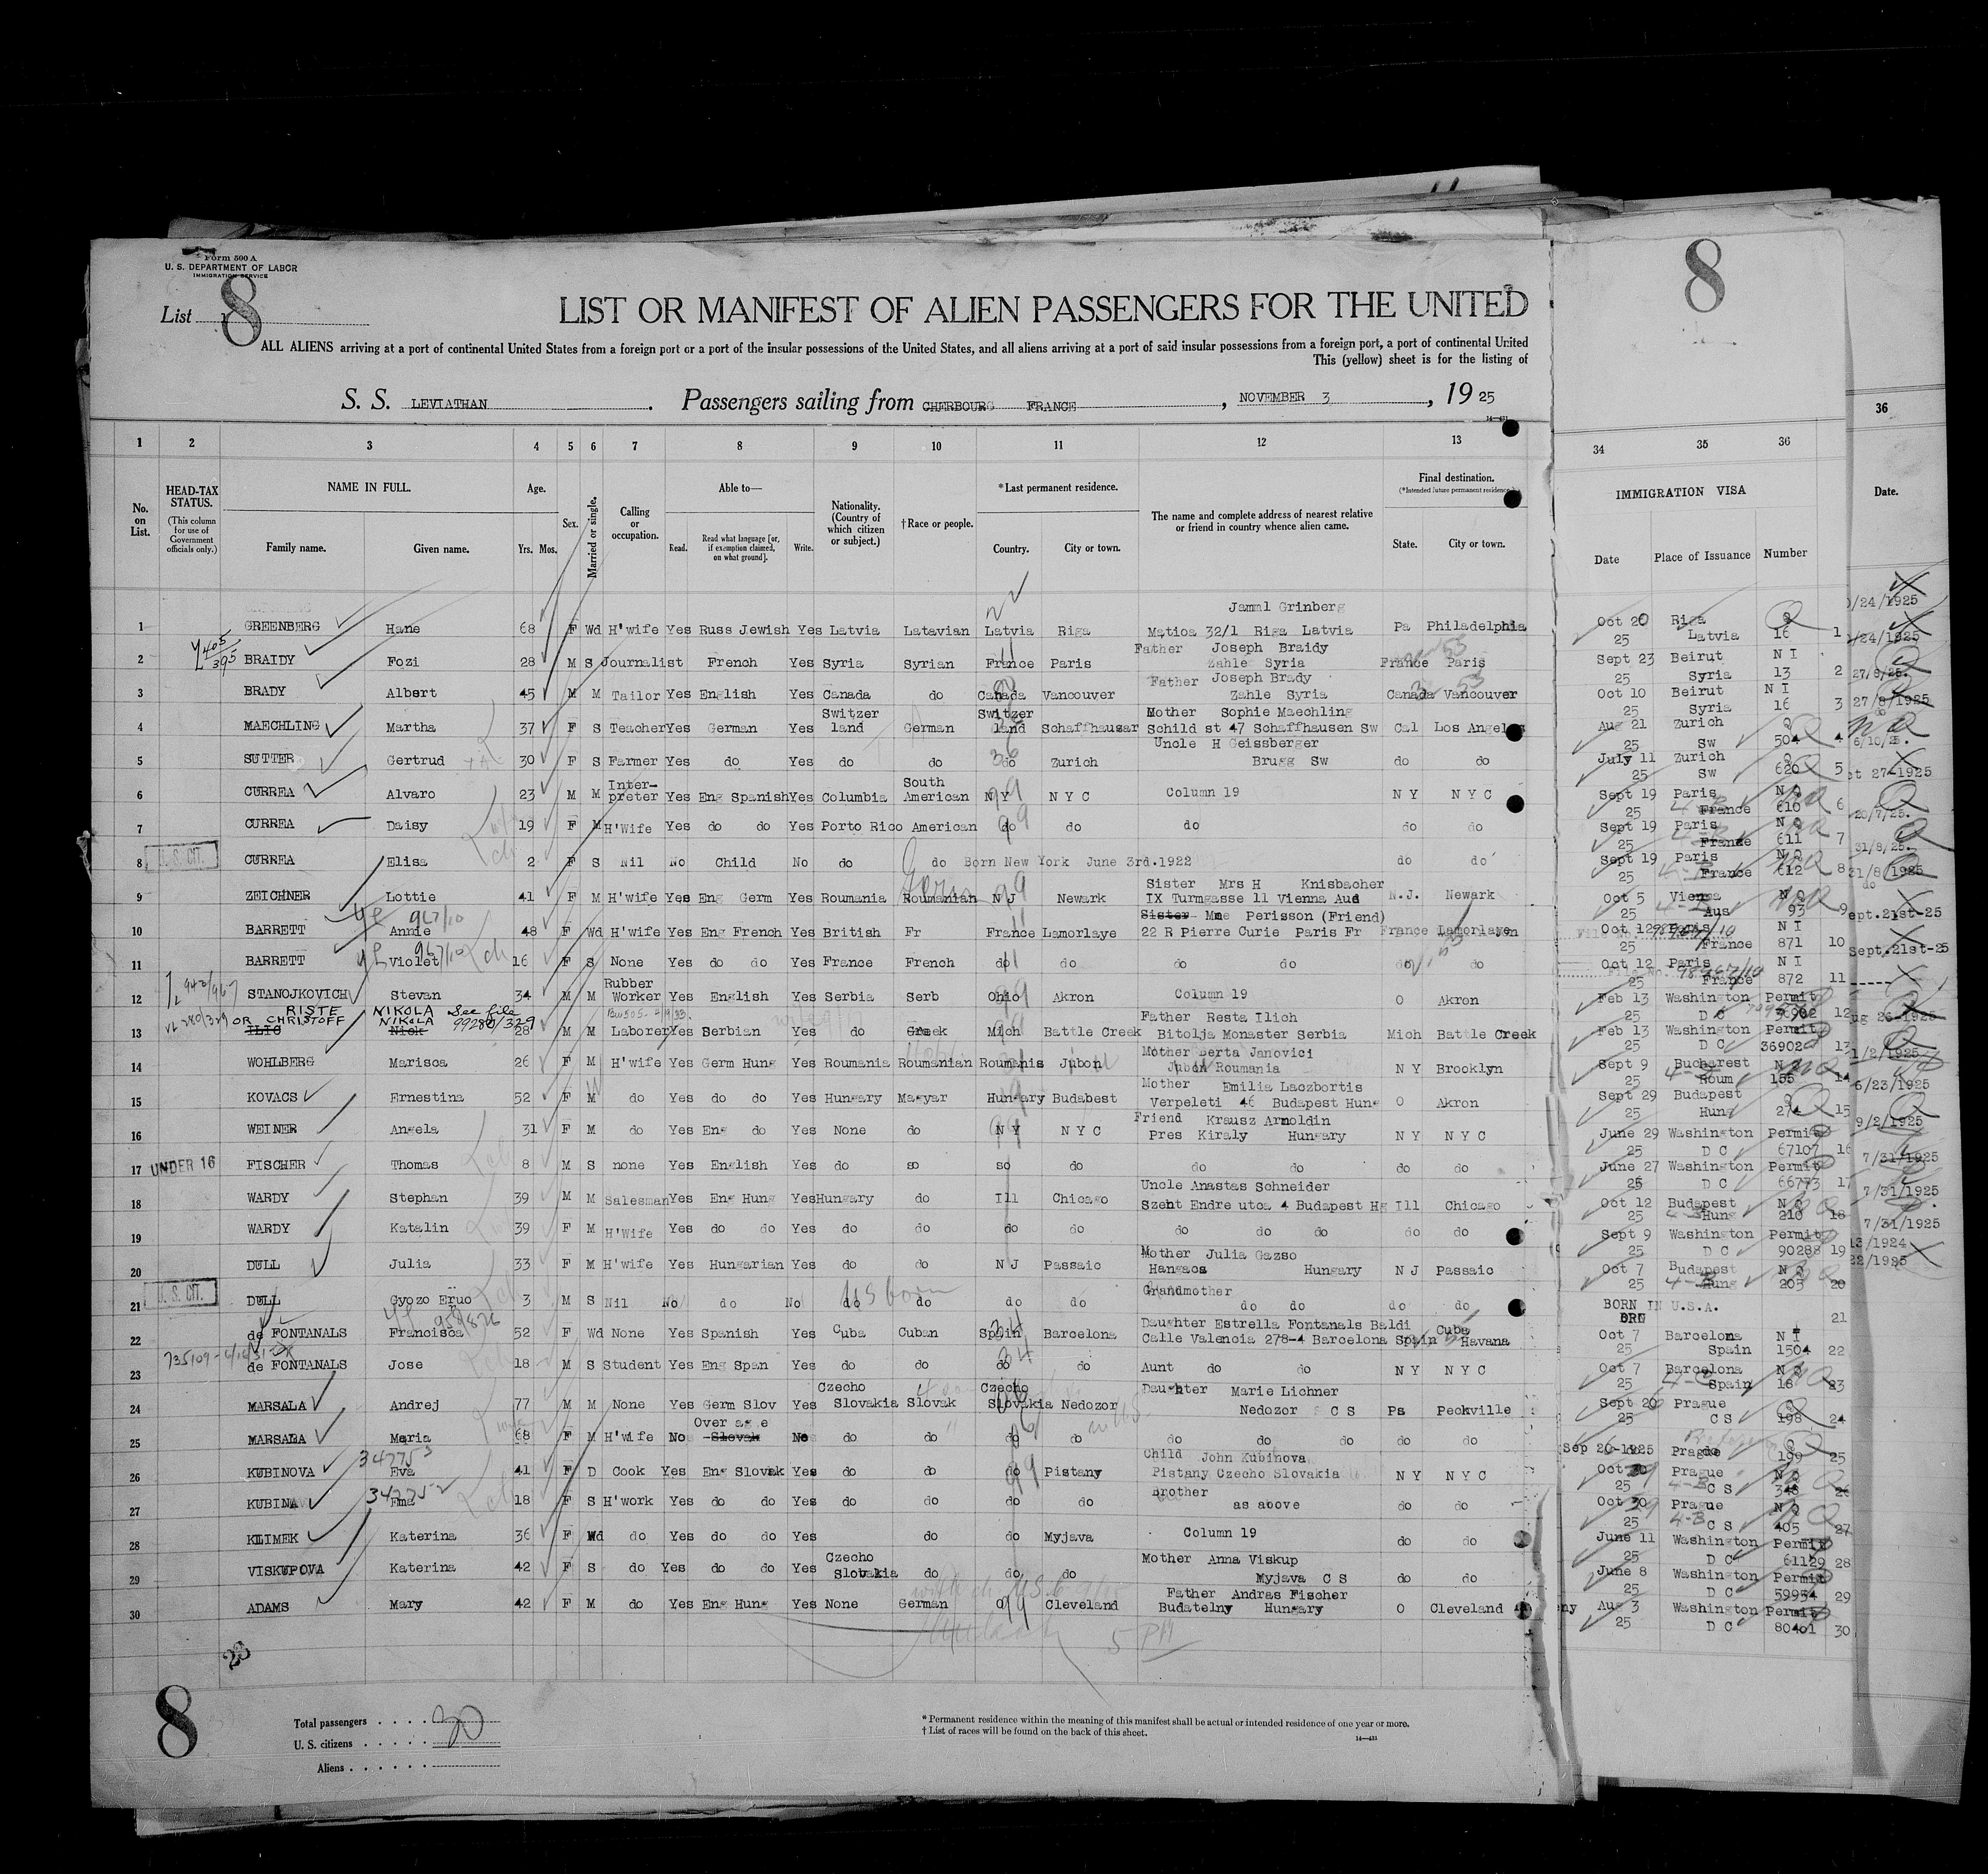 Form 500 A
U. S. DEPARTMENT OF LABOR
IMMIGRATION SERVICE
List 8
8
LIST OR MANIFEST OF ALIEN PASSENGERS FOR THE UNITED
ALL ALIENS arriving at a port of continental United States from a foreign port or a port of the insular possessions of the United States, and all aliens arriving at a port of said insular possessions from a foreign port, a port of continental United
This (yellow) sheet is for the listing of
S. S. LEVIATHAN . Passengers sailing from CHERBOURG FRANCE , NOVEMBER 3 , 19 25
1 2 3 4 5 6 7 8 9 10 11 12 13 34 35 36 36
No. on List.
HEAD-TAX STATUS.
(This column for use of Government officials only.)
NAME IN FULL.
Family name. Given name.
Age.
Yrs. Mos.
Sex.
Married or single.
Calling or occupation.
Able to—
Read. Read what language [or, if exemption claimed, on what ground]. Write.
Nationality. (Country of which citizen or subject.)
†Race or people.
*Last permanent residence.
Country. City or town.
The name and complete address of nearest relative or friend in country whence alien came.
Final destination.
(*Intended future permanent residence.)
State. City or town.
IMMIGRATION VISA
Date Place of Issuance Number
Date.
1 GREENBERG Hane 68 F Wd H'wife Yes Russ Jewish Yes Latvia Latavian Latvia Riga Jamml Grinberg Matioa 32/1 Riga Latvia Pa Philadelphia Oct 20 25 Riga Latvia Q 16 1
2 BRAIDY Fozi 28 M S Journalist French Yes Syria Syrian France Paris Father Joseph Braidy Zahle Syria France Paris Sept 23 25 Beirut Syria N I 13 2
3 BRADY Albert 45 M M Tailor Yes English Yes Canada do Canada Vancouver Father Joseph Brady Zahle Syria Canada Vancouver Oct 10 25 Beirut Syria N I 16 3
4 MAECHLING Martha 37 F S Teacher Yes German Yes Switzer land German Switzer land Schaffhausar Mother Sophie Maechling Schild st 47 Schaffhausen Sw Cal Los Angeles Aug 21 25 Zurich Sw Q 504 4
5 SUTTER Gertrud 30 F S Farmer Yes do Yes do do do Zurich Uncle H Geissberger Brugg Sw do do July 11 25 Zurich Sw Q 620 5
6 CURREA Alvaro 23 M M Inter-preter Yes Eng Spanish Yes Columbia South American N Y N Y C Column 19 N Y N Y C Sept 19 25 Paris France N Q 610 6
7 CURREA Daisy 19 F M H'Wife Yes do do Yes Porto Rico American do do do do do Sept 19 25 Paris France N Q 611 7
8 U. S. CIT. CURREA Elisa 2 F S Nil No Child No do do Born New York June 3rd.1922 do do Sept 19 25 Paris France N Q 612 8
9 ZEICHNER Lottie 41 F M H'wife Yes Eng Germ Yes Roumania Roumanian N J Newark Sister Mrs H Knisbacher IX Turmgasse 11 Vienna Aud N.J. Newark Oct 5 25 Vienna Aus N Q 93 9
10 BARRETT Annie 48 F Wd H'wife Yes Eng French Yes British Fr France Lamorlaye Sister Mme Perisson (Friend) 22 R Pierre Curie Paris Fr France Lamorlaye Oct 12 25 Paris France N I 871 10
11 BARRETT Violet 16 F S None Yes do do Yes France French do do do do do do Oct 12 25 Paris France N I 872 11
12 STANOJKOVICH Stevan 34 M M Rubber Worker Yes English Yes Serbia Serb Ohio Akron Column 19 O Akron Feb 13 25 Washington D C Permit 36902 12
RISTE NIKOLA See file
OR CHRISTOFF NIKOLA 99280/329
13 ILIC Nick 28 M M Laborer Yes Serbian Yes do Greek Mich Battle Creek Father Resta Ilich Bitolja Monaster Serbia Mich Battle Creek Feb 13 25 Washington D C Permit 36902 13
14 WOHLBERG Marisca 26 F M H'wife Yes Germ Hung Yes Roumania Roumanian Roumanis Jubon Mother Berta Janovici Jubon Roumania N Y Brooklyn Sept 9 25 Bucharest Roum 155 14
15 KOVACS Ernestina 52 F M do Yes do do Yes Hungary Magyar Hungary Budabest Mother Emilia Laczbortis Verpeleti 46 Budapest Hung O Akron Sept 29 25 Budapest Hung Q 274 15
16 WEINER Angela 31 F M do Yes Eng do Yes None do N Y N Y C Friend Krausz Arnoldin Pres Kiraly Hungary N Y N Y C June 29 25 Washington D C Permit 67107 16
17 UNDER 16 FISCHER Thomas 8 M S none Yes English Yes do so so do do do do do June 27 25 Washington D C Permit 66773 17
18 WARDY Stephan 39 M M Salesman Yes Eng Hung Yes Hungary do Ill Chicago Uncle Anastas Schneider Szent Endre utca 4 Budapest Hg Ill Chicago Oct 12 25 Budapest Hung N Q 210 18
19 WARDY Katalin 39 F M H'Wife Yes do do Yes do do do do do do do do do Sept 9 25 Washington D C Permit 90288 19
20 DULL Julia 33 F M H'wife Yes Hungarian Yes do do N J Passaic Mother Julia Gazso Hangacs Hungary N J Passaic Oct 7 25 Budapest Hung N Q 205 20
21 U. S. CIT. DULL Gyozo Eruo 3 M S Nil No do No do US born do do do Grandmother do do do do BORN IN U.S.A. 21
22 de FONTANALS Francisca 52 F Wd None Yes Spanish Yes Cuba Cuban Spain Barcelona Daughter Estrella Fontanals Baldi Calle Valencia 278-4 Barcelona Spain Cuba Havana Oct 7 25 Barcelona Spain N I 1504 22
23 de FONTANALS Jose 18 M S Student Yes Eng Span Yes do do do do Aunt do do N Y N Y C Oct 7 25 Barcelona Spain 18 23
24 MARSALA Andrej 77 M M None Yes Germ Slov Yes Czecho Slovakia Slovak Czecho Slovakia Nedozor Daughter Marie Lichner Nedozor C S Pa Peckville Sept 26 25 Prague C S Q 198 24
25 MARSALA Maria 68 F M H'wife No Over age Slovak No do do do do do do do do do Sep 20-1925 Prague 199 25
26 KUBINOVA Eva 41 F D Cook Yes Eng Slovak Yes do do do Pistany Child John Kubinova Pistany Czecho Slovakia N Y N Y C Oct 25 Prague C S N Q 348 26
27 KUBINA Ema 18 F S H'work Yes do do Yes do do do do Brother as above do do Oct 25 Prague C S N Q 405 27
28 KLIMEK Katerina 36 F Wd do Yes do do Yes do do Myjava Column 19 do do June 11 25 Washington D C Permit 61129 28
29 VISKUPOVA Katerina 42 F S do Yes do do Yes Czecho Slovakia do do do Mother Anna Viskup Myjava C S do do June 8 25 Washington D C Permit 59954 29
30 ADAMS Mary 42 F M do Yes Eng Hung Yes None German O Cleveland Father Andras Fischer Budatelny Hungary O Cleveland Aug 3 25 Washington D C Permit 80401 30
5 PM
23
8
Total passengers . . . . 30
U. S. citizens . . . . .
Aliens . . . . . .
* Permanent residence within the meaning of this manifest shall be actual or intended residence of one year or more.
† List of races will be found on the back of this sheet.